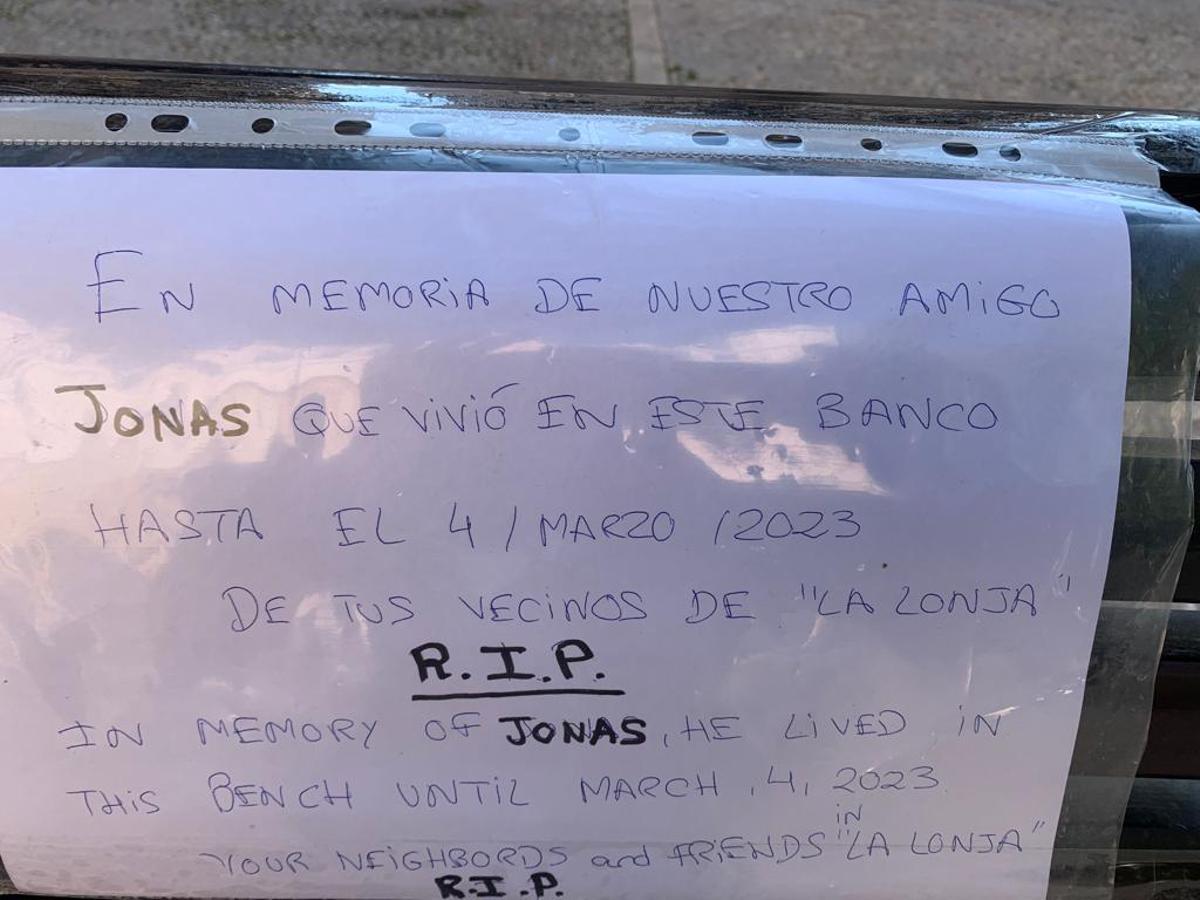 EN MEMORIA DE NUESTRO AMIGO
JONAS QUE VIVIÓ EN ESTE BANCO
HASTA EL 4 / MARZO / 2023
DE TUS VECINOS DE "LA LONJA"
R.I.P.
IN MEMORY OF JONAS, HE LIVED IN
THIS BENCH UNTIL MARCH , 4, 2023
IN
YOUR NEIGHBORDS and FRIENDS "LA LONJA"
R.I.P.